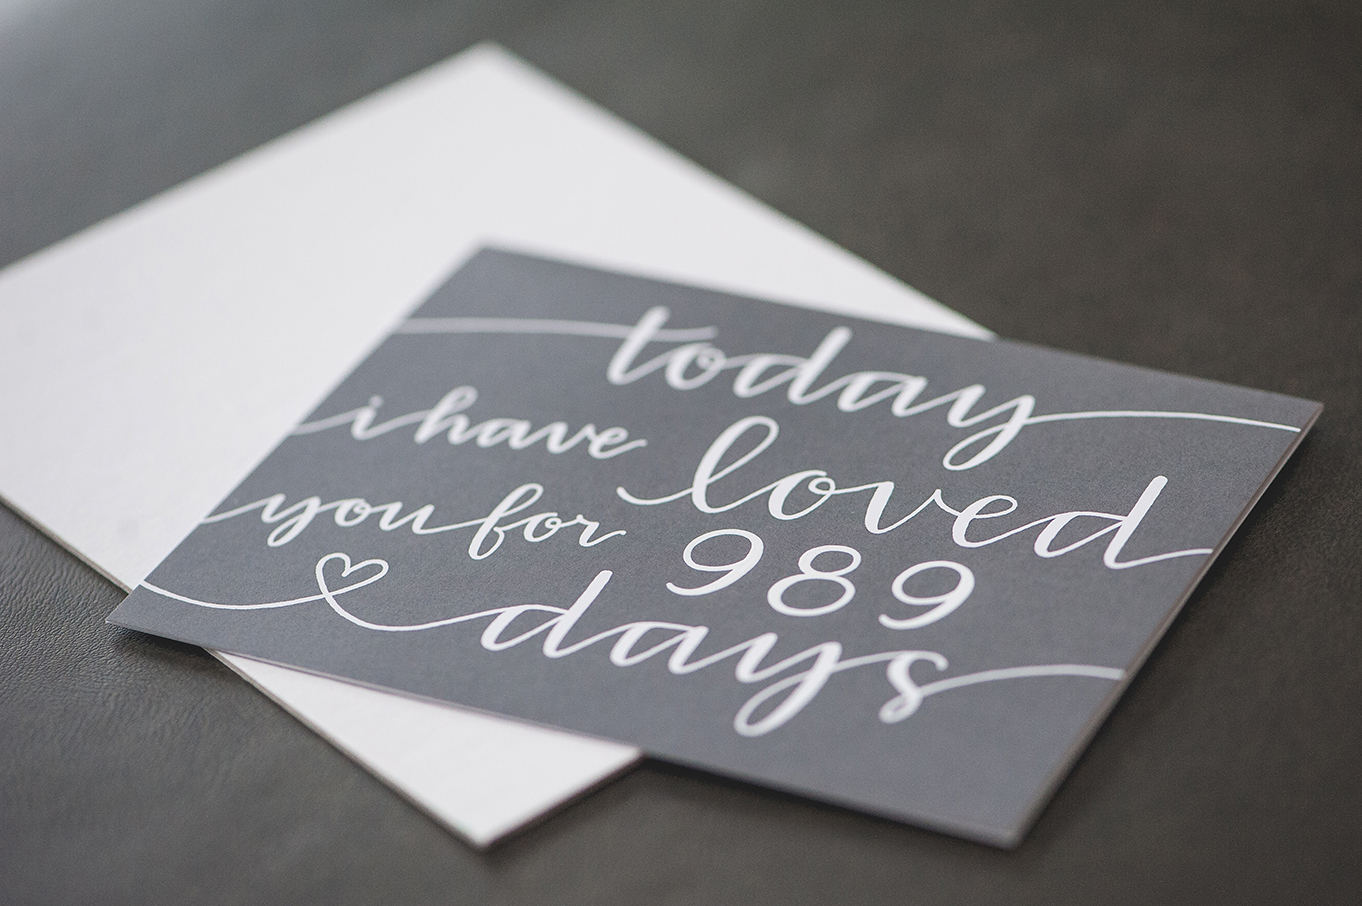 today
i have loved
you for 989
days